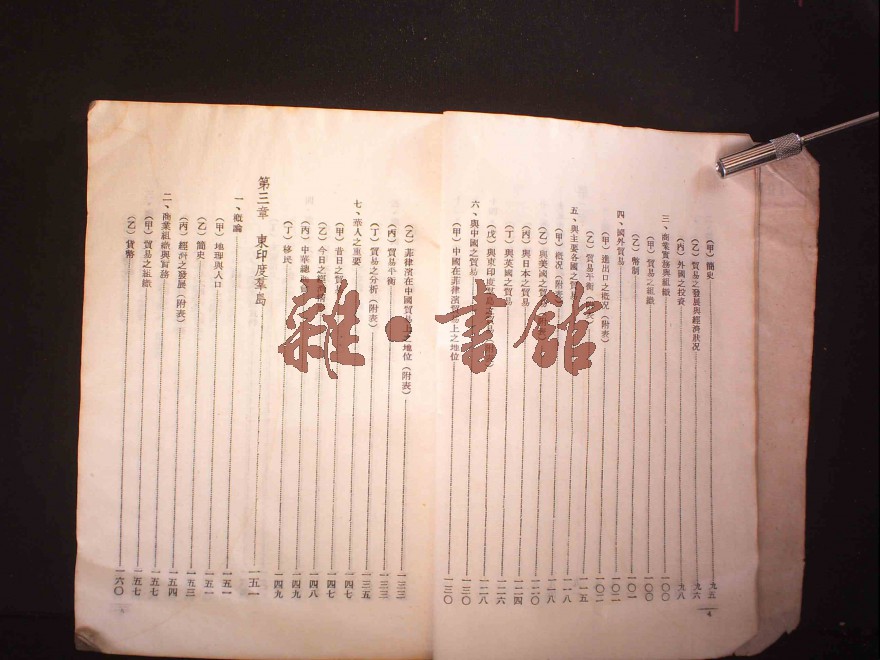 (甲)簡史 九五
(乙)貿易之發展與經濟狀況 九六
(丙)外國之投資 九八
三、商業實務與組織 一〇〇
(甲)貿易之組織 一〇〇
(乙)幣制 一〇一
四、國外貿易 一〇二
(甲)進出口之概況(附表) 一〇二
(乙)貿易平衡 表) 一一五
五、與主要各國之貿易 一一八
(甲)概況(附表) 一一八
(乙)與美國之貿易 一二〇
(丙)與日本之貿易 一二四
(丁)與英國之貿易 一二六
(戊)與東印度 之貿易 一二八
六、與中國之貿易 一三〇
(甲)中國在菲律濱 上之地位 一三〇
4
(乙)菲律濱在中國貿易上之地位(附表) 一三三
(丙)貿易平衡 一三三
(丁)貿易之分析(附表) 一三五
七、華人之重要 一四七
(甲)昔日之貿易 一四七
(乙)今日之經濟 一四八
(丙)中華總 一四九
(丁)移民 一四九
第三章 東印度羣島 一五一
一、概論 一五一
(甲)地理與人口 一五一
(乙)簡史 一五三
(丙)經濟之發展(附表) 一五四
二、商業組織與實務 一五七
(甲)貿易之組織 一五七
(乙)貨幣 一六〇
雜·書館